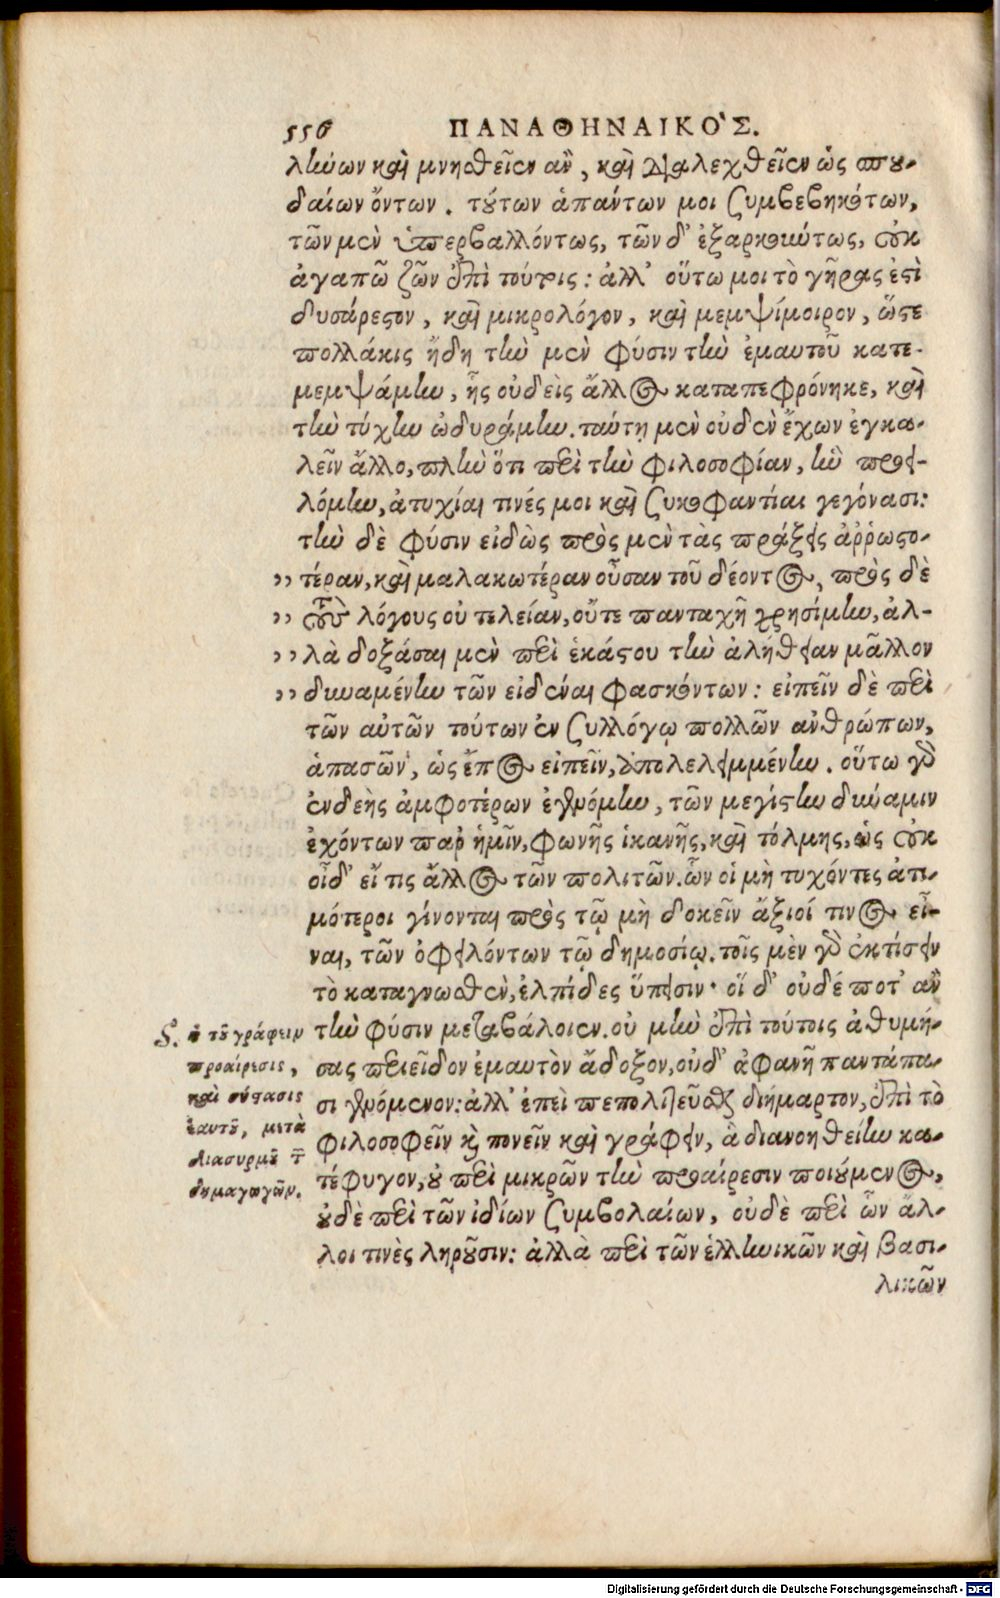 556 ΠΑΝΑΘΗΝΑΙΚΟ'Σ.
λήνων καὶ μνησθεῖεν ἂν, καὶ διαλεχθεῖεν ὡς σπου-
δαίων ὄντων. τούτων ἁπάντων μοι συμβεβηκότων,
τῶν μὲν ὑπερβαλλόντως, τῶν δ' ἐξαρκούντως, οὐκ
ἀγαπῶ ζῶν ἐπὶ τούτοις: ἀλλ' οὕτω μοι τὸ γῆρας ἐστὶ
δυσάρεστον, καὶ μικρολόγον, καὶ μεμψίμοιρον, ὥστε
πολλάκις ἤδη τὴν μὲν φύσιν τὴν ἐμαυτοῦ κατε-
μεμψάμην, ἧς οὐδεὶς ἄλλος καταπεφρόνηκε, καὶ
τὴν τύχην ὠδυράμην. ταύτῃ μὲν οὐδὲν ἔχων ἐγκα-
λεῖν ἄλλο, πλὴν ὅτι περὶ τὴν φιλοσοφίαν, ἣν προει-
λόμην, ἀτυχίαι τινές μοι καὶ συκοφαντίαι γεγόνασι:
τὴν δὲ φύσιν εἰδὼς πρὸς μὲν τὰς πράξεις ἀῤῥωστο-
,, τέραν, καὶ μαλακωτέραν οὖσαν τοῦ δέοντος, πρὸς δὲ
,, τοὺς λόγους οὐ τελείαν, οὔτε πανταχῆ χρησίμην, ἀλ-
,, λὰ δοξάσαι μὲν περὶ ἑκάστου τὴν ἀλήθειαν μᾶλλον
,, δυναμένην τῶν εἰδέναι φασκόντων: εἰπεῖν δὲ περὶ
τῶν αὐτῶν τούτων ἐν συλλόγῳ πολλῶν ἀνθρώπων,
ἁπασῶν, ὡς ἔπος εἰπεῖν, ἀπολελειμμένην. οὕτω γὰρ
ἐνδεὴς ἀμφοτέρων ἐγενόμην, τῶν μεγίστην δύναμιν
ἐχόντων παρ' ἡμῖν, φωνῆς ἱκανῆς, καὶ τόλμης, ὡς οὐκ
οἶδ' εἴ τις ἄλλος τῶν πολιτῶν. ὧν οἱ μὴ τυχόντες ἀτι-
μότεροι γίνονται πρὸς τῷ μὴ δοκεῖν ἄξιοί τινος εἶ-
ναι, τῶν ὀφειλόντων τῷ δημοσίῳ. τοῖς μὲν γὰρ ἐκτίσειν
τὸ καταγνωσθὲν, ἐλπίδες ὕπεισιν· οἵ δ' οὐδέποτ' ἂν
τὴν φύσιν μεταβάλοιεν. οὐ μὴν ἐπὶ τούτοις ἀθυμή-
σας περιεῖδον ἐμαυτὸν ἄδοξον, οὐδ' ἀφανῆ παντάπα-
σι γενόμενον: ἀλλ' ἐπεὶ πεπολιτεῦσθαι διήμαρτον, ἐπὶ τὸ
φιλοσοφεῖν καὶ πονεῖν καὶ γράφειν, ἃ διανοηθείην κα-
τέφυγον, οὐ περὶ μικρῶν τὴν προαίρεσιν ποιούμενος,
οὐδὲ περὶ τῶν ἰδίων συμβολαίων, οὐδὲ περὶ ὧν ἄλ-
λοι τινὲς ληροῦσιν: ἀλλὰ περὶ τῶν ἑλληνικῶν καὶ βασι-
λικῶν
S. ἡ τοῦ γράφειν
προαίρεσις,
καὶ σύστασις
ἑαυτοῦ, μετὰ
διασυρμοῦ τῶν
δημαγωγῶν.
Digitalisierung gefördert durch die Deutsche Forschungsgemeinschaft - DFG